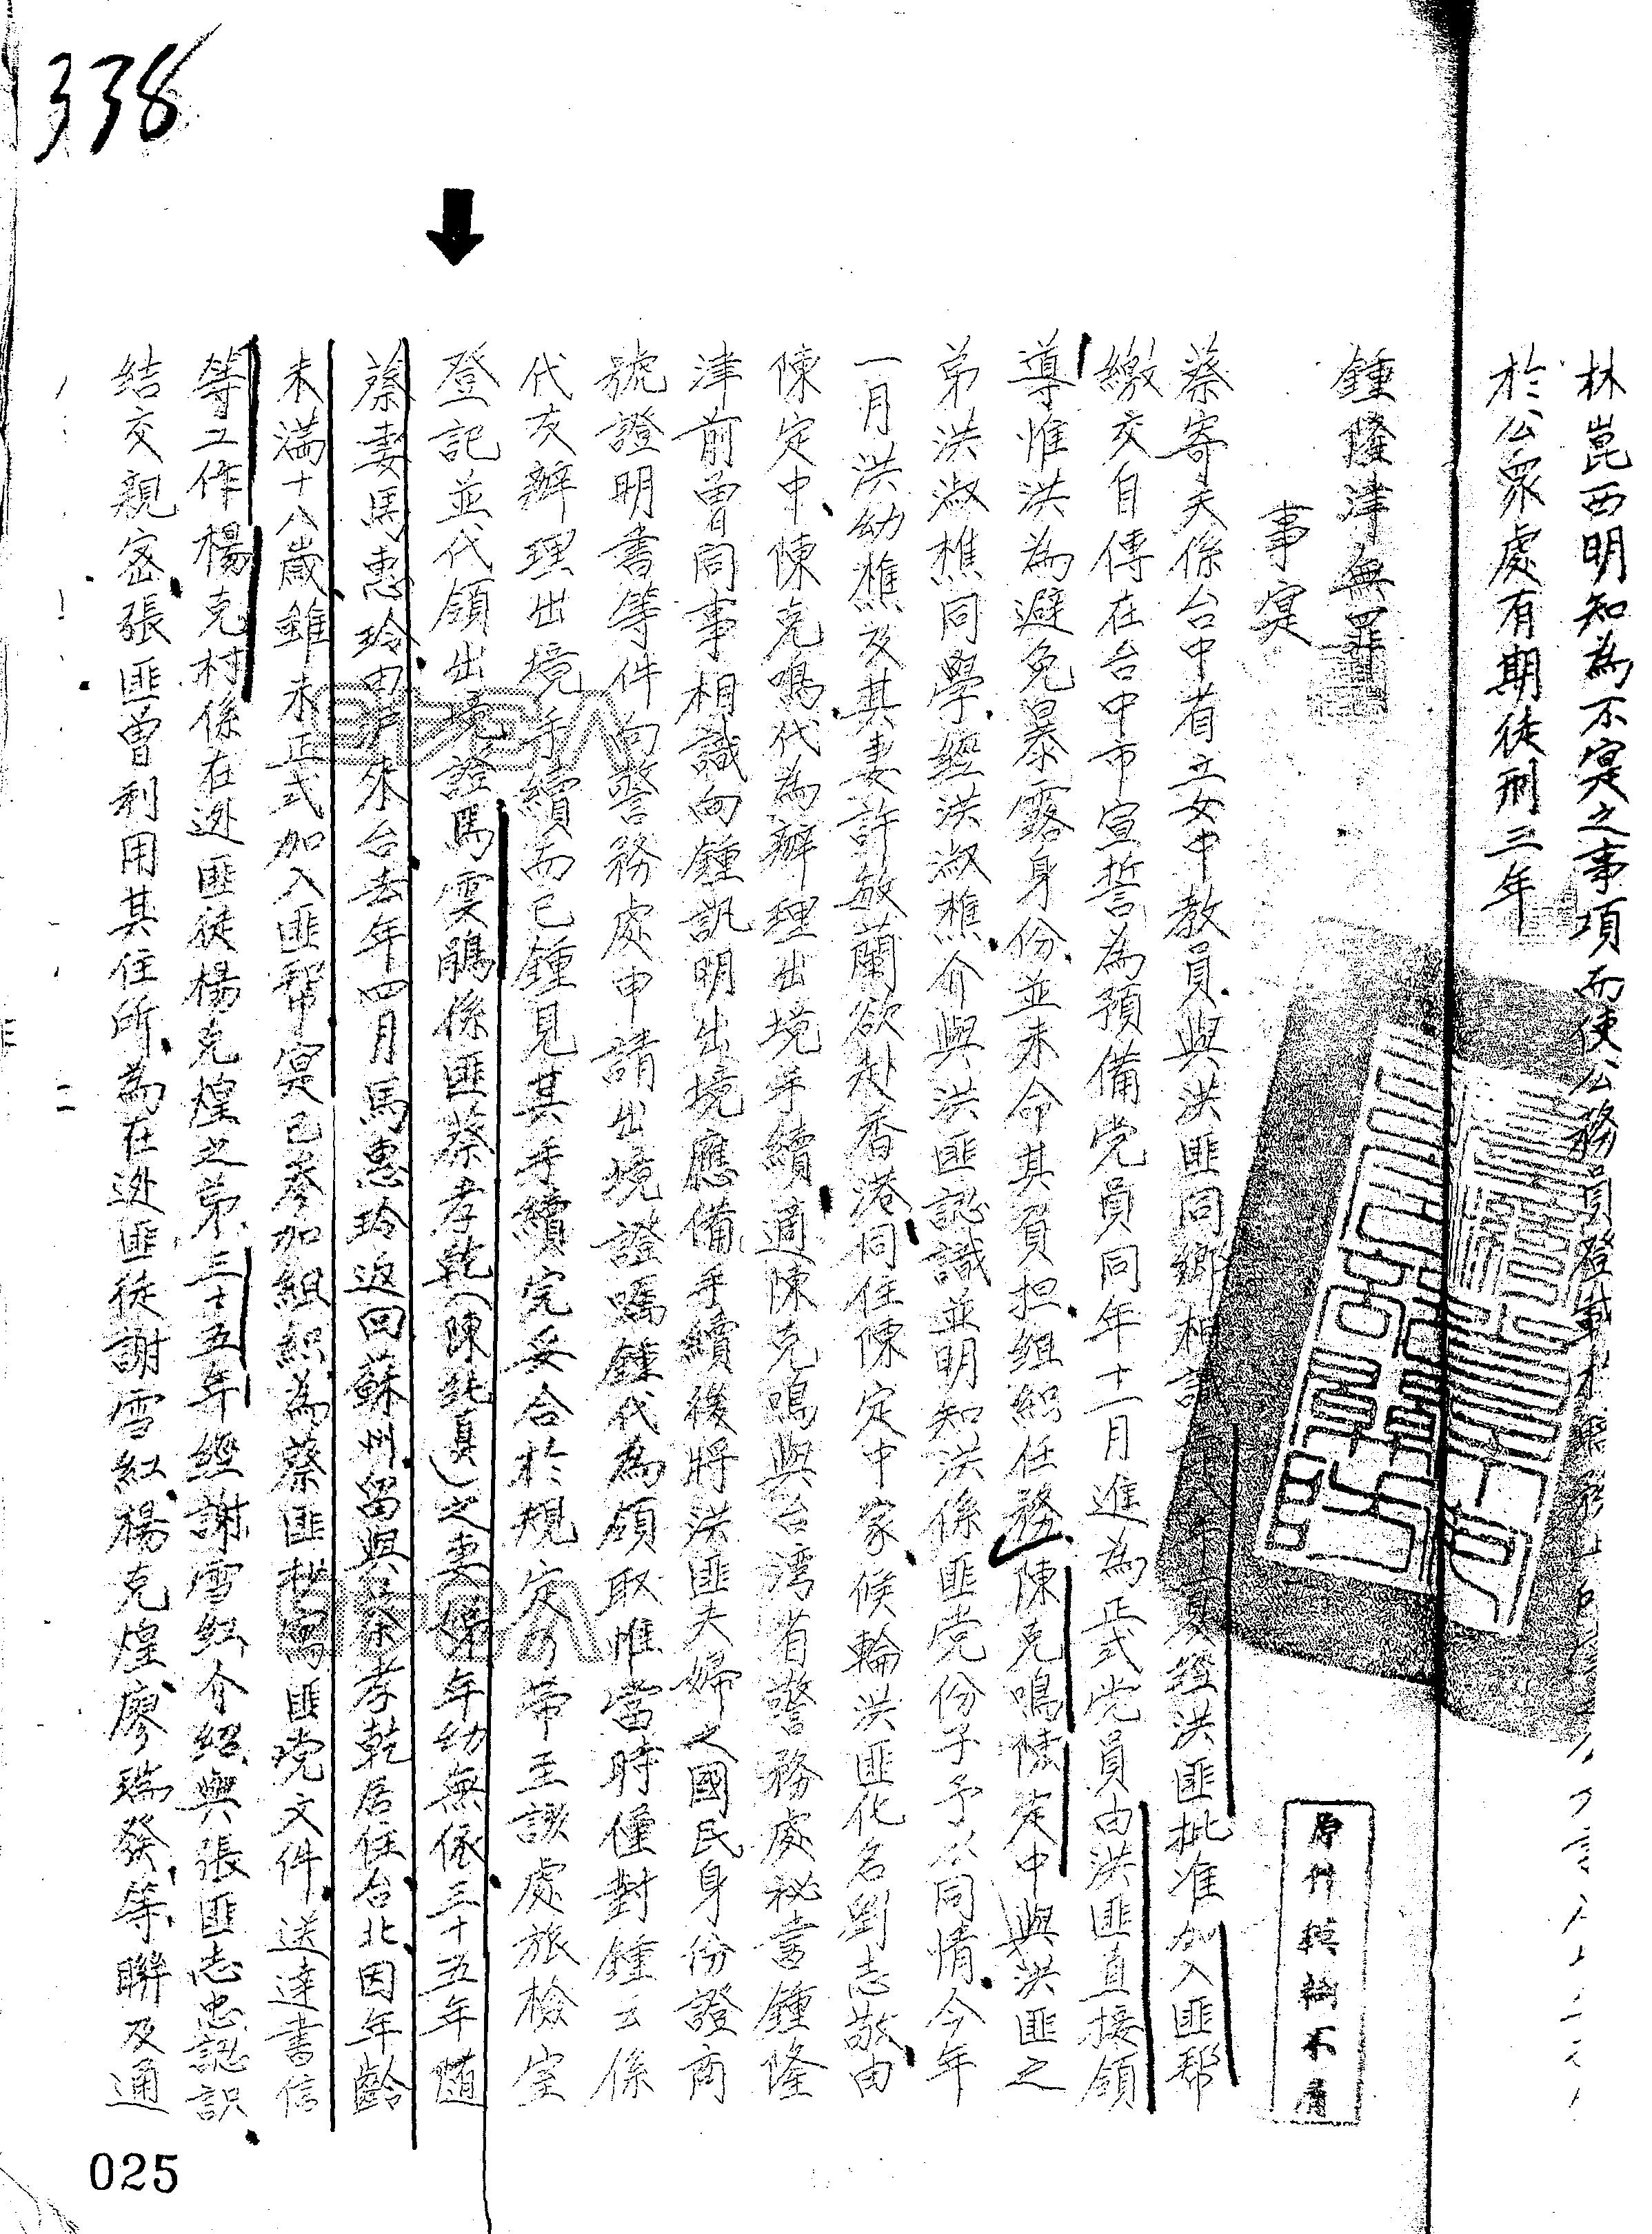 338
林崑西明知為不寔之事項而使公務員登載
於公眾處有期徒刑三年
鍾隆津無罪
事寔
蔡寄天係台中省立女中教員與洪匪同鄉相識 經洪匪批准加入匪幫
繳交自傳在台中市宣誓為預備党員同年十一月進為正式党員由洪匪直接領
導惟洪為避免暴露身份並未命其負担組織任務陳克鳴陳定中與洪匪之
弟洪淑樵同學經洪淑樵介與洪匪認識並明知洪係匪党份子予以同情今年
一月洪幼樵及其妻許敏蘭欲赴香港同住陳定中家候輪洪匪化名劉志敬由
陳定中陳克鳴代為辦理出境手續適陳克鳴與台湾省警務處祕書鍾隆
津前曾同事相識向鍾訊明出境應備手續後將洪匪夫婦之國民身份證商
號證明書等件向警務處申請出境證嗎鍾代為領取惟當時僅對鍾云係
代友辦理出境手續而已鍾見其手續完妥合於規定乃帶至該處旅檢室
登記並代領出境證馬雯鵑係匪蔡孝乾(陳純真)之妻姨年幼無依三十五年隨
蔡妻馬惠玲由戸來台去年四月馬惠玲返回蘇州留與蔡孝乾居住台北因年齡
未滿十八歲雖未正式加入匪幫寔已參加組織為蔡匪抄寫匪党文件送達書信
等工作楊克村係在逃匪徒楊克煌之弟三十五年經謝雪紅介紹與張匪志忠認识
結交親密張匪曾利用其住所為在逃匪徒謝雪紅楊克煌廖瑞發等聯及通
原件模糊不清
025